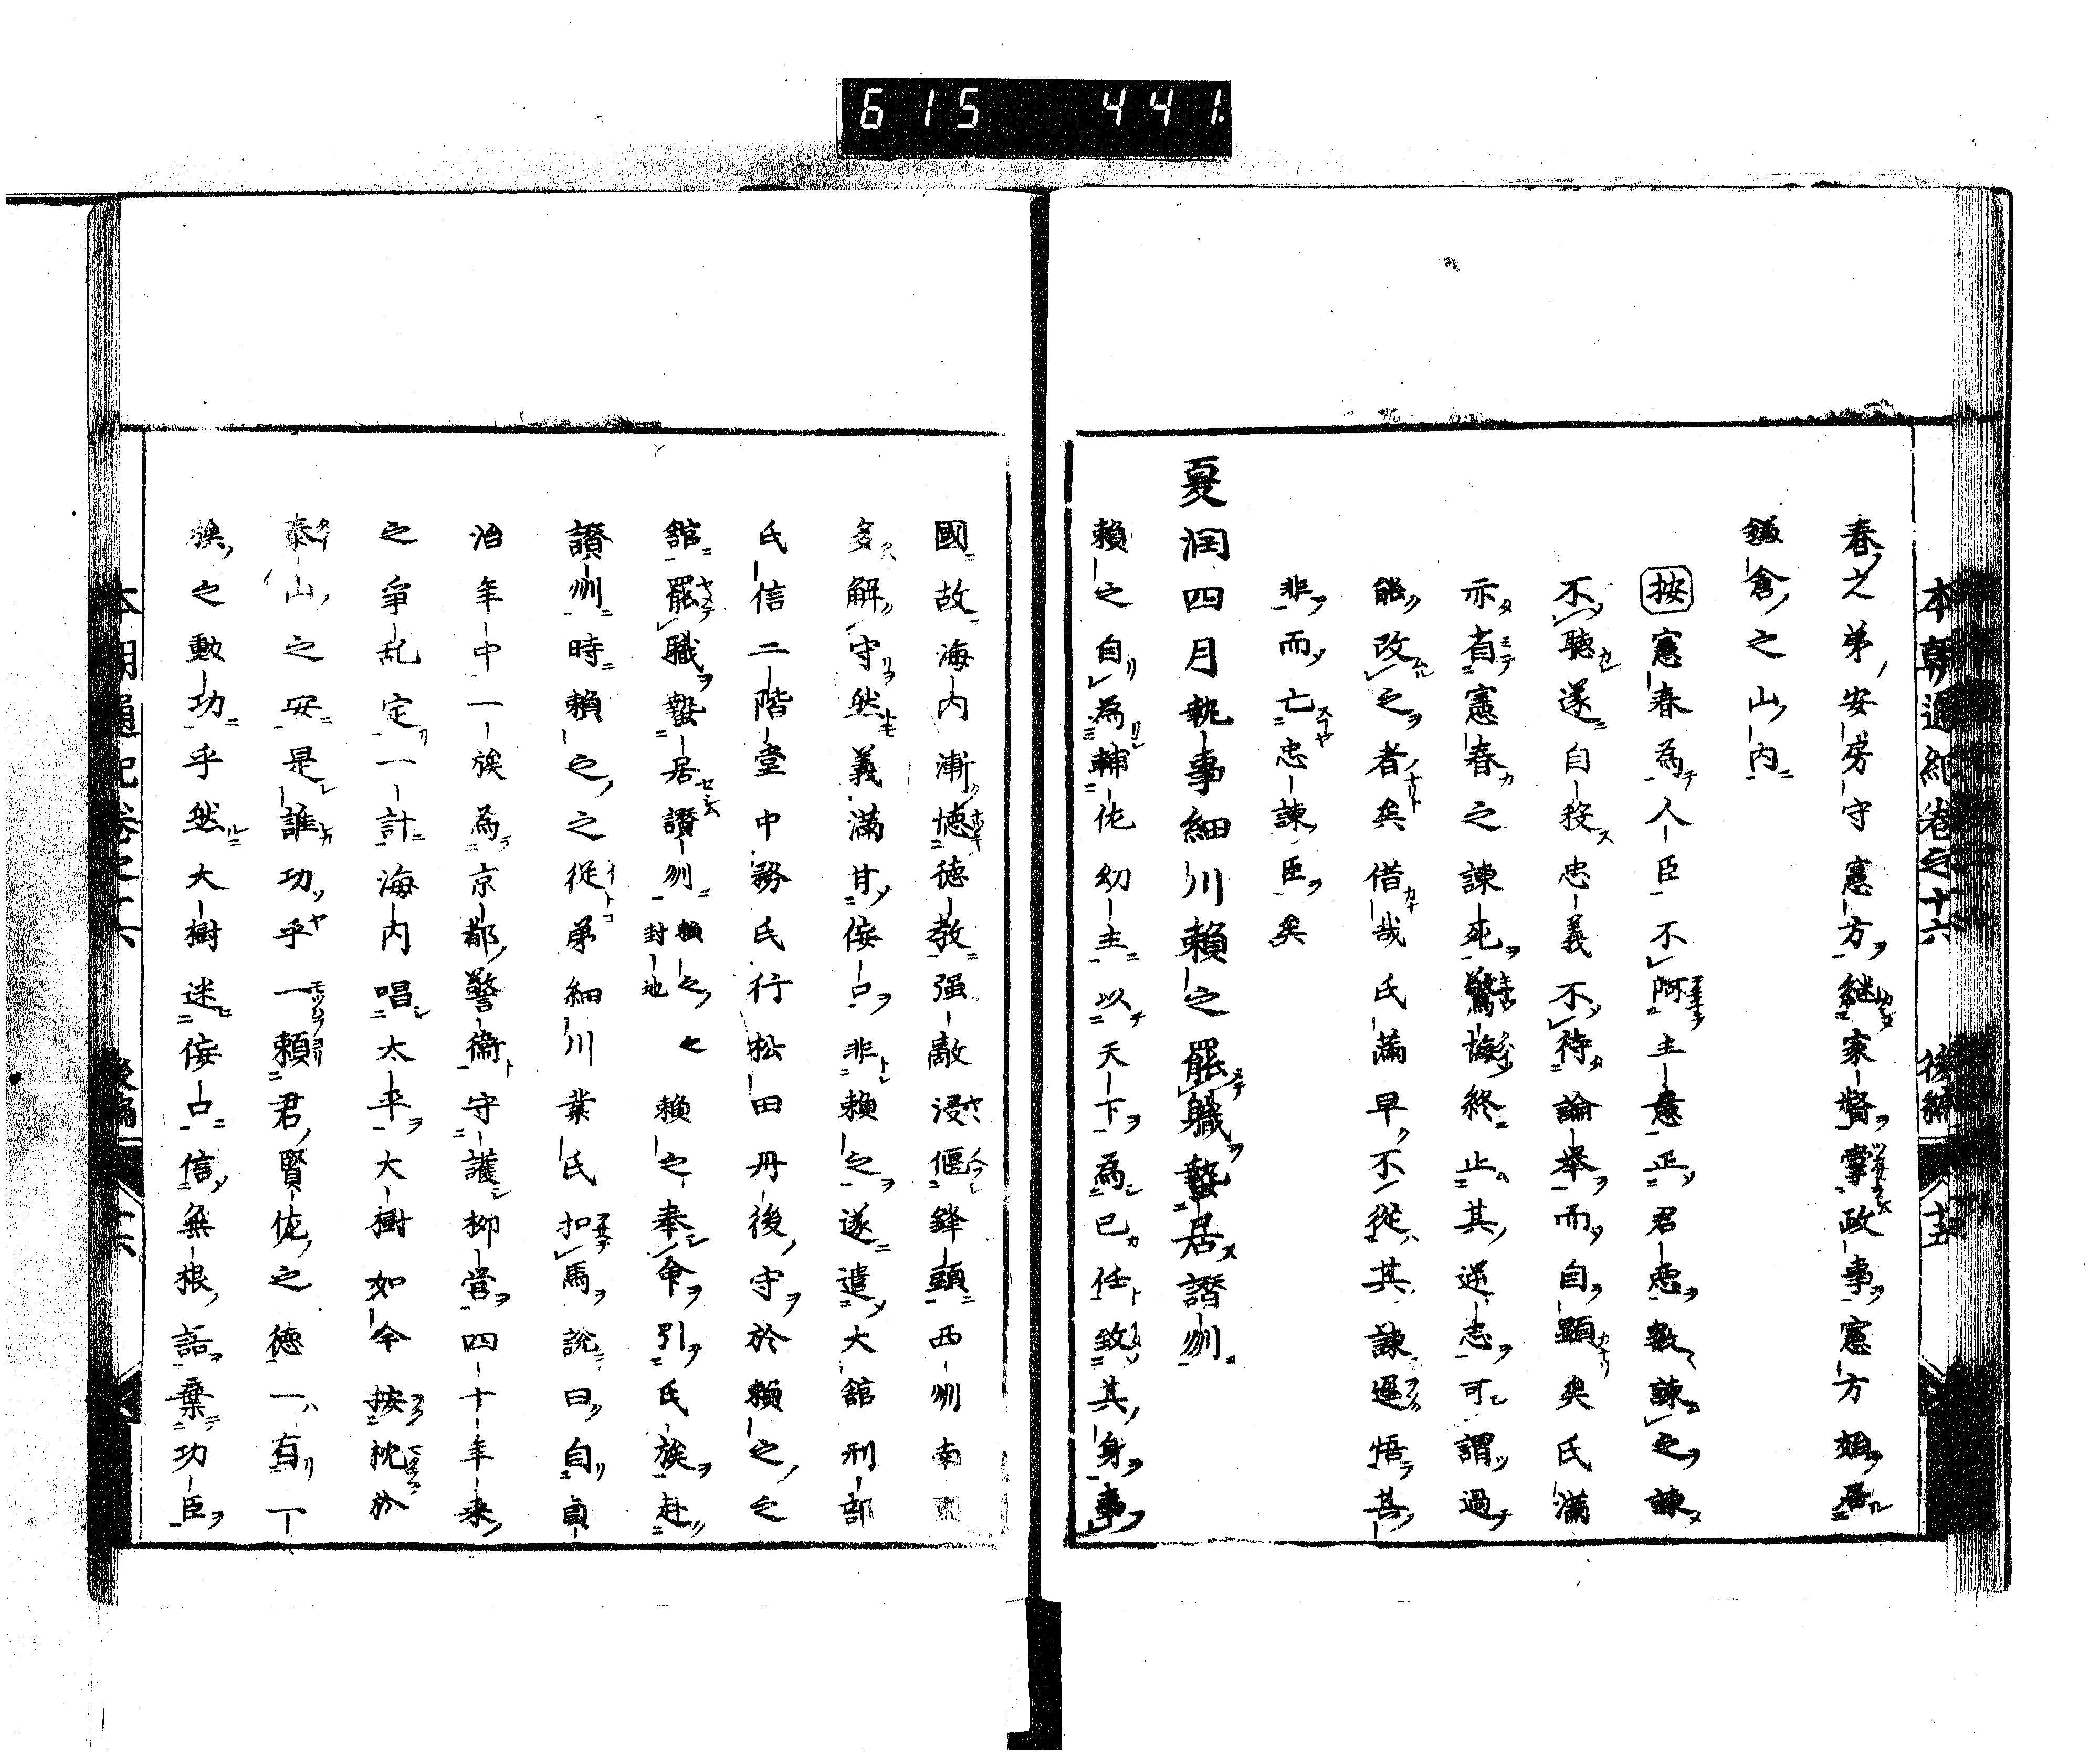 615 441.
本朝通紀巻之十六 後編 十五
春之弟安房守憲方継家督掌政事憲方始居
鎌倉之山内
按憲春為人臣不阿主意正君悪数諌之諌
不聴遂自殺忠義不待論挙而自顕矣氏満
亦省憲春之諌死驚悔終止其逆志可謂過
能改之者矣借哉氏満早不從其諌遅悟其
非而亡忠諌臣矣
夏润四月執事細川頼之罷職蟄居讃州
頼之自為輔佐幼主以天下為己任致其身事
國故海内漸懐徳教强敵浸偃鋒頭西州南
多解守然義満甘佞口非頼之遂遣大舘刑部
氏信二階堂中務氏行松田丹後守於頼之之
舘罷職蟄居讃州頼之之封地之頼之奉命引氏族赴
讃州時頼之之從弟細川業氏扣馬説曰自貞
治年中一族為京都警衞守護柳営四十年来
之爭乱定一計海内唱太平大樹如今按枕於
泰山之安是誰功乎一頼君賢佐之徳一有丁
族之勲功乎然大樹迷佞口信無根話棄功臣